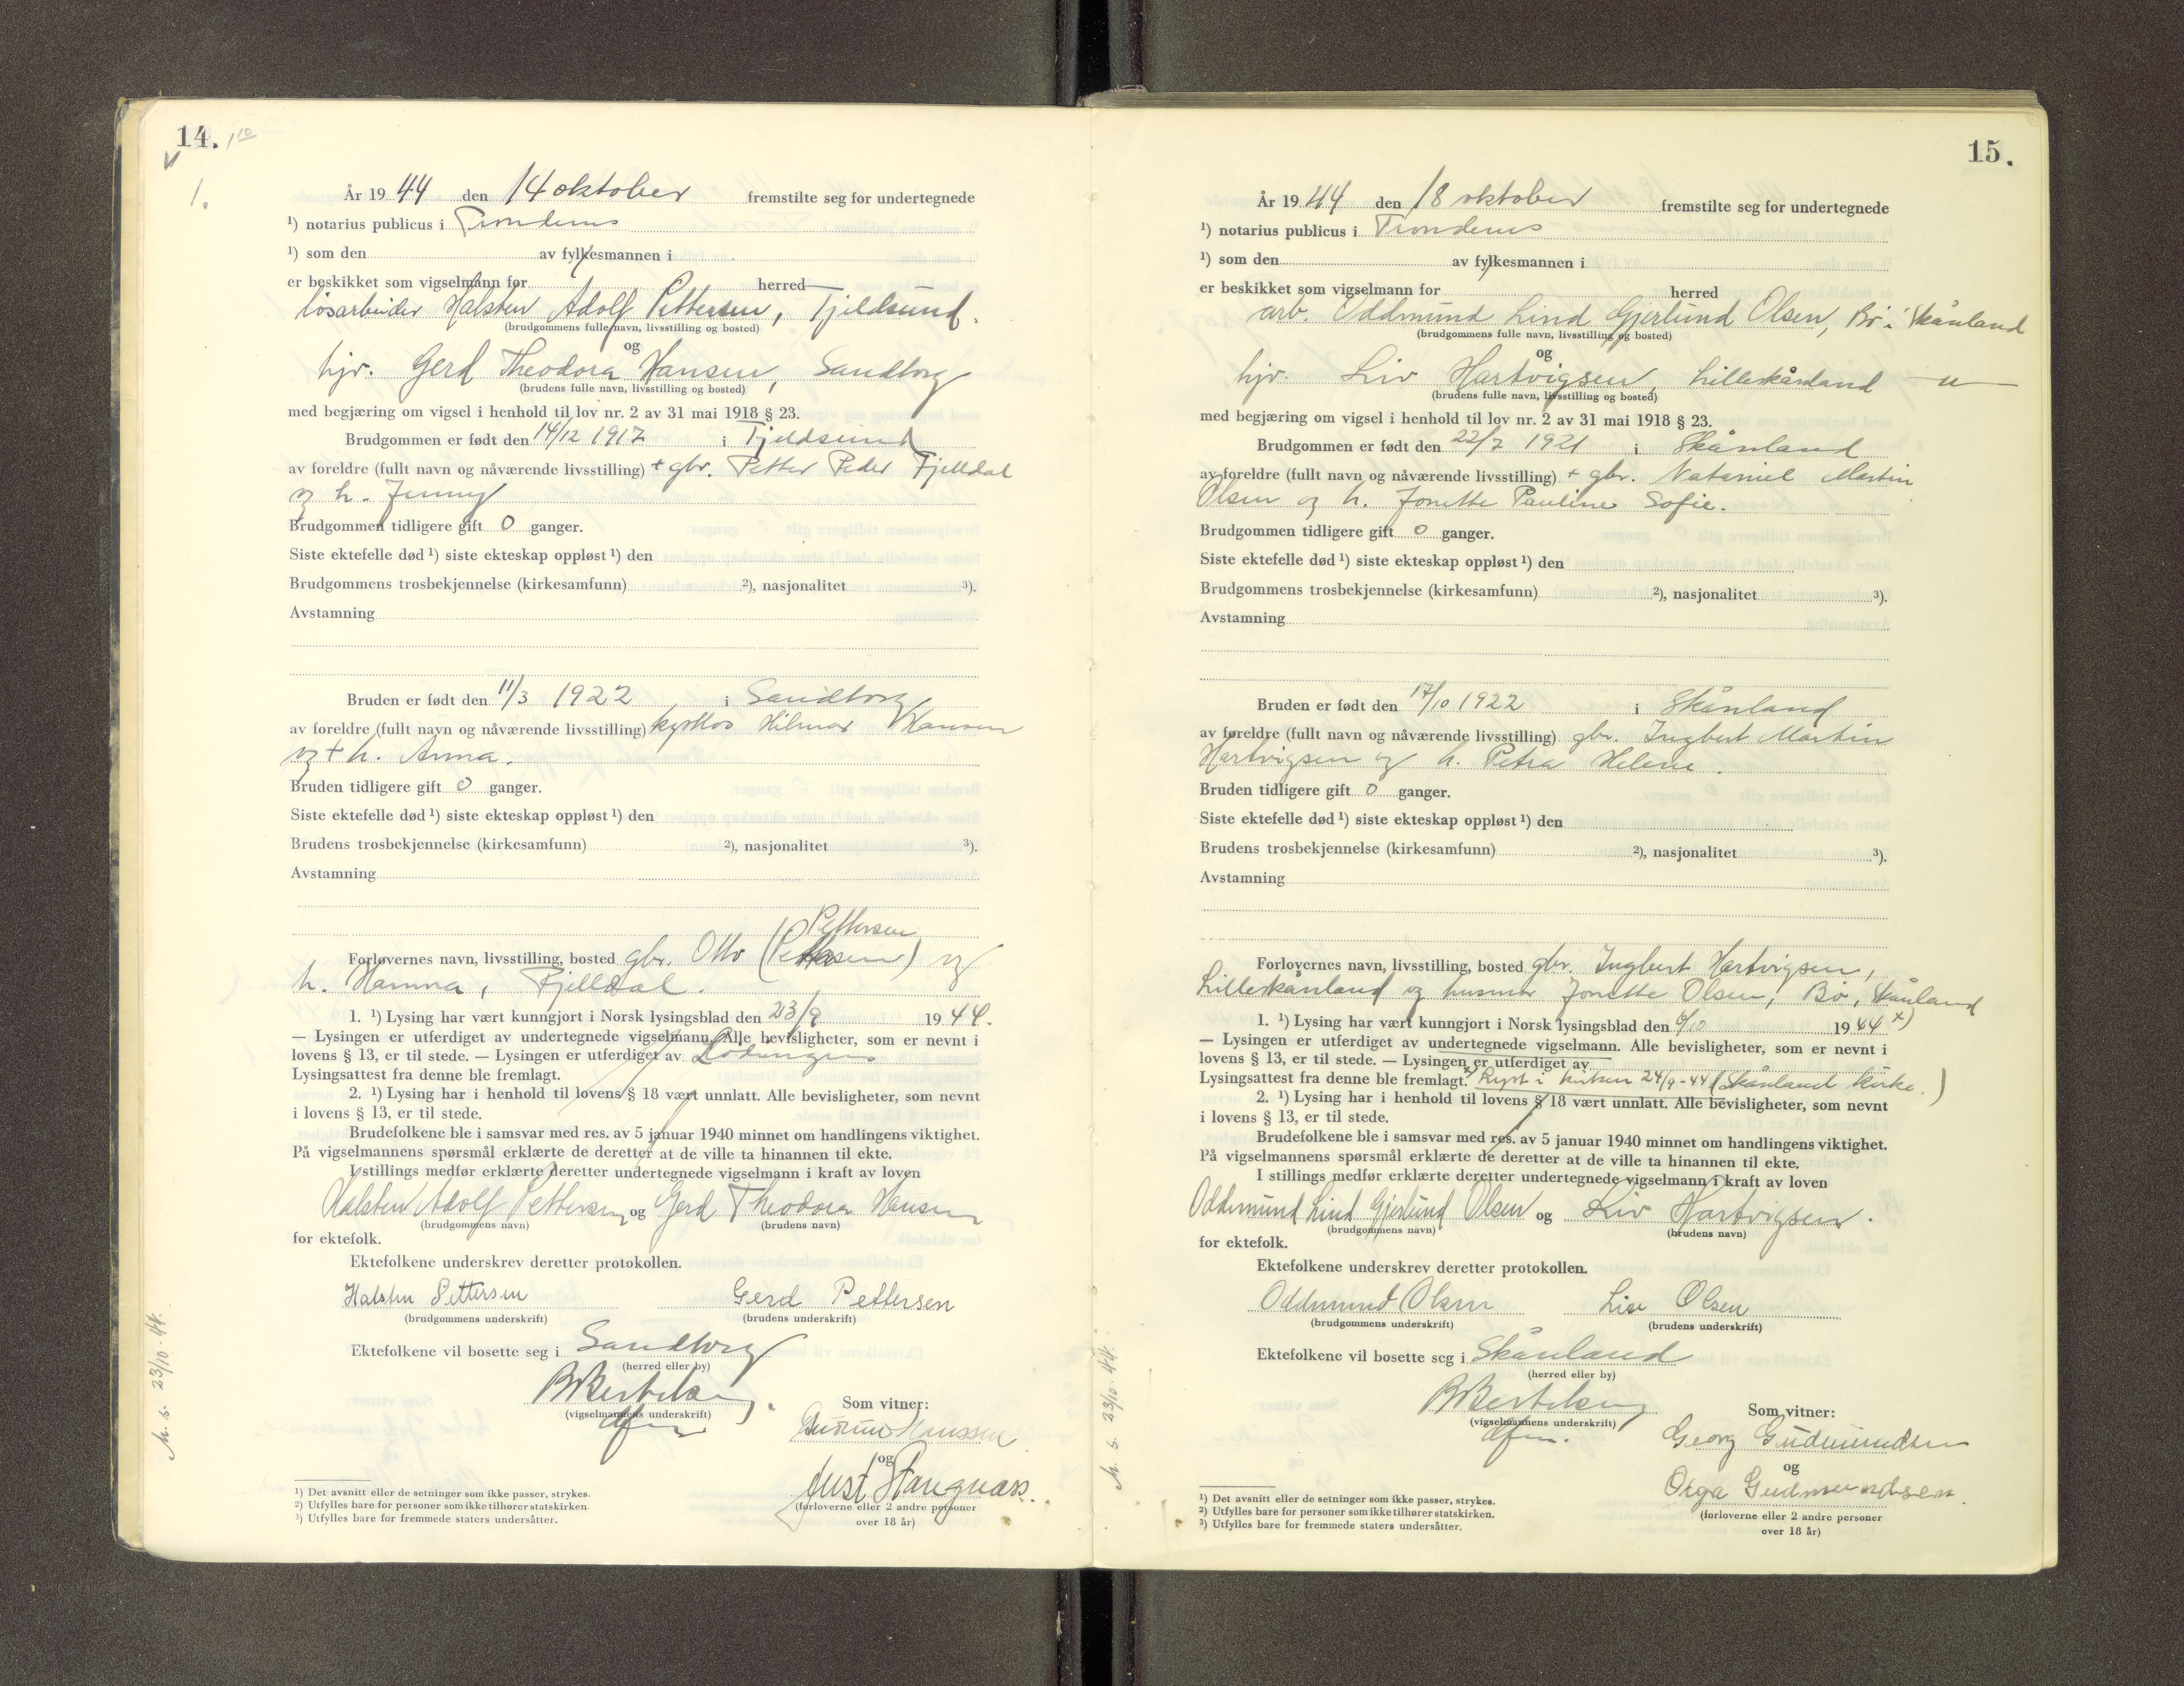 14. 1 10
1.
År 1944 den 14 oktober fremstilte seg for undertegnede
¹) notarius publicus i Trondenes
¹) som den av fylkesmannen i
er beskikket som vigselmann for herred
løsarbeider Halsten Adolf Pettersen, Tjeldsund.
(brudgommens fulle navn, livsstilling og bosted)
og
hjv. Gerd Theodora Hansen, Sandtorg
(brudens fulle navn, livsstilling og bosted)
med begjæring om vigsel i henhold til lov nr. 2 av 31 mai 1918 § 23.
Brudgommen er født den 14/12 1917 i Tjeldsund
av foreldre (fullt navn og nåværende livsstilling) + gbr. Petter Peder Fjelldal
og h. Jenny
Brudgommen tidligere gift 0 ganger.
Siste ektefelle død ¹) siste ekteskap oppløst ¹) den
Brudgommens trosbekjennelse (kirkesamfunn) ²), nasjonalitet ³).
Avstamning
Bruden er født den 11/3 1922 i Sandtorg
av foreldre (fullt navn og nåværende livsstilling) Hilmar Hansen
og + h. Anna.
Bruden tidligere gift 0 ganger.
Siste ektefelle død ¹) siste ekteskap oppløst ¹) den
Brudens trosbekjennelse (kirkesamfunn) ²), nasjonalitet ³).
Avstamning
Pettersen
Forlovernes navn, livsstilling, bosted gbr. Otto ( ) og
h. Hanna, Fjelldal.
1. ¹) Lysing har vært kunngjort i Norsk lysingsblad den 23/9 1944.
— Lysingen er utferdiget av undertegnede vigselmann. Alle bevisligheter, som er nevnt i
lovens § 13, er til stede. — Lysingen er utferdiget av Lødingen
Lysingsattest fra denne ble fremlagt.
2. ¹) Lysing har i henhold til lovens § 18 vært unnlatt. Alle bevisligheter, som nevnt
i lovens § 13, er til stede.
Brudefolkene ble i samsvar med res. av 5 januar 1940 minnet om handlingens viktighet.
På vigselmannens spørsmål erklærte de deretter at de ville ta hinannen til ekte.
I stillings medfør erklærte deretter undertegnede vigselmann i kraft av loven
Halsten Adolf Pettersen og Gerd Theodora Hansen
(brudgommens navn) (brudens navn)
for ektefolk.
Ektefolkene underskrev deretter protokollen.
Halsten Pettersen Gerd Pettersen
(brudgommens underskrift) (brudens underskrift)
Ektefolkene vil bosette seg i Sandtorg
(herred eller by)
B Bertelsen
(vigselmannens underskrift)
Som vitner:
Hanssen
og
Just
(forloverne eller 2 andre personer
over 18 år)
¹) Det avsnitt eller de setninger som ikke passer, strykes.
²) Utfylles bare for personer som ikke tilhører statskirken.
³) Utfylles bare for fremmede staters undersåtter.
M. s. 23/10. 44.
15.
År 1944 den 18 oktober fremstilte seg for undertegnede
¹) notarius publicus i Trondenes
¹) som den av fylkesmannen i
er beskikket som vigselmann for herred
arb. Oddmund Lind Gjerlund Olsen, Bø i Skånland
(brudgommens fulle navn, livsstilling og bosted)
og
hjv. Liv Hartvigsen, Lilleskånland — " —
(brudens fulle navn, livsstilling og bosted)
med begjæring om vigsel i henhold til lov nr. 2 av 31 mai 1918 § 23.
Brudgommen er født den 22/7 1921 i Skånland
av foreldre (fullt navn og nåværende livsstilling) + gbr. Nataniel Martin
Olsen og h. Jonette Pauline Sofie.
Brudgommen tidligere gift 0 ganger.
Siste ektefelle død ¹) siste ekteskap oppløst ¹) den
Brudgommens trosbekjennelse (kirkesamfunn) ²), nasjonalitet ³).
Avstamning
Bruden er født den 17/10 1922 i Skånland
av foreldre (fullt navn og nåværende livsstilling) gbr. Ingbert Martin
Hartvigsen og h. Petra Helene.
Bruden tidligere gift 0 ganger.
Siste ektefelle død ¹) siste ekteskap oppløst ¹) den
Brudens trosbekjennelse (kirkesamfunn) ²), nasjonalitet ³).
Avstamning
Forlovernes navn, livsstilling, bosted gbr. Ingbert Hartvigsen,
Lilleskånland og husmor Jonette Olsen, Bø, Skånland
1. ¹) Lysing har vært kunngjort i Norsk lysingsblad den 6/10 1944 x)
— Lysingen er utferdiget av undertegnede vigselmann. Alle bevisligheter, som er nevnt i
lovens § 13, er til stede. — Lysingen er utferdiget av
Lysingsattest fra denne ble fremlagt. x) Lyst i kirken 24/9-44 (Skånland kirke.)
2. ¹) Lysing har i henhold til lovens § 18 vært unnlatt. Alle bevisligheter, som nevnt
i lovens § 13, er til stede.
Brudefolkene ble i samsvar med res. av 5 januar 1940 minnet om handlingens viktighet.
På vigselmannens spørsmål erklærte de deretter at de ville ta hinannen til ekte.
I stillings medfør erklærte deretter undertegnede vigselmann i kraft av loven
Oddmund Lind Gjerlund Olsen og Liv Hartvigsen.
(brudgommens navn) (brudens navn)
for ektefolk.
Ektefolkene underskrev deretter protokollen.
Oddmund Olsen Liv Olsen
(brudgommens underskrift) (brudens underskrift)
Ektefolkene vil bosette seg i Skånland
(herred eller by)
B Bertelsen
(vigselmannens underskrift)
Som vitner:
Georg Gudmundsen
og
Olga Gudmundsen
(forloverne eller 2 andre personer
over 18 år)
¹) Det avsnitt eller de setninger som ikke passer, strykes.
²) Utfylles bare for personer som ikke tilhører statskirken.
³) Utfylles bare for fremmede staters undersåtter.
M. s. 23/10. 44.